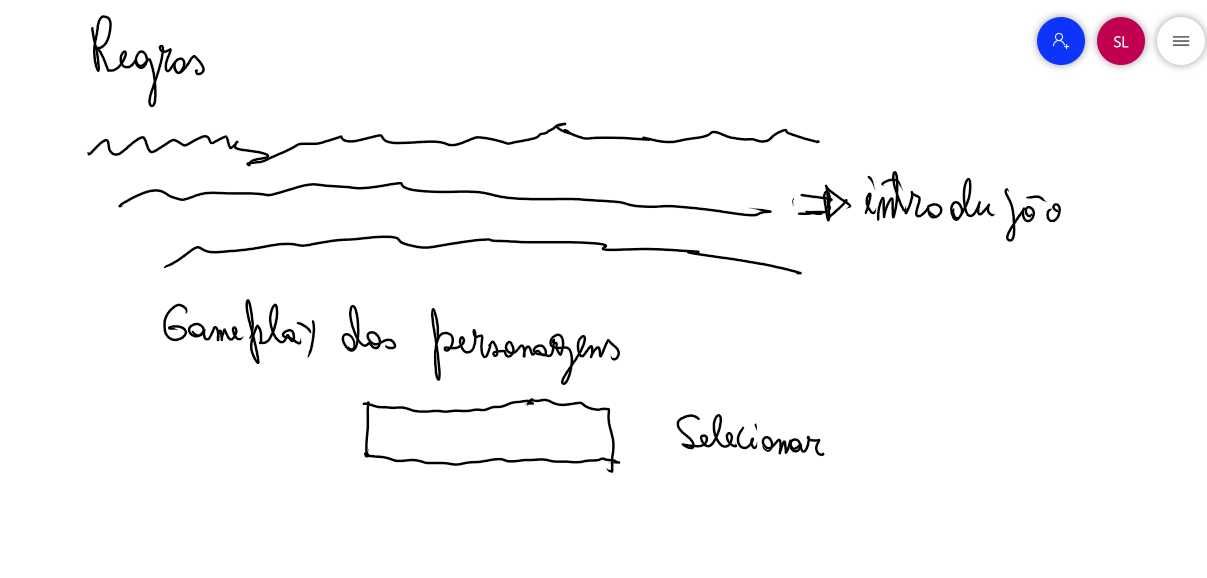 SL
Regras
introdução
Gameplay dos personagens
Selecionar